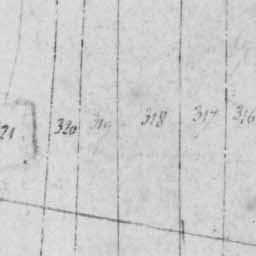 21 320 319 318 317 316